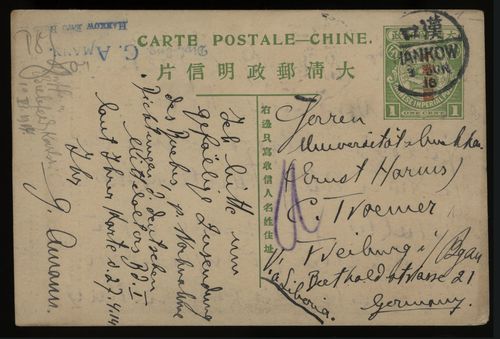 G. AMANN
HANKOW
CARTE POSTALE—CHINE.
大清郵政明信片
右邊只寫收信人名姓住址
漢口
HANKOW
16
CHINESE IMPERIAL POST
1 ONE CENT 1
Ich bitte um
gefällige Zusendung
des Buches, p. Nachnahme
Dichtungen d. deutschen
Mittelalters Bd. I
laut Ihrer Karte d. 27.4.14
Ihr
G. Amann.
Herren
(Ernst Harms)
C. Troemer
Freiburg i/Bgau
Bertholdstrasse 21
Via Siberia.
Germany.